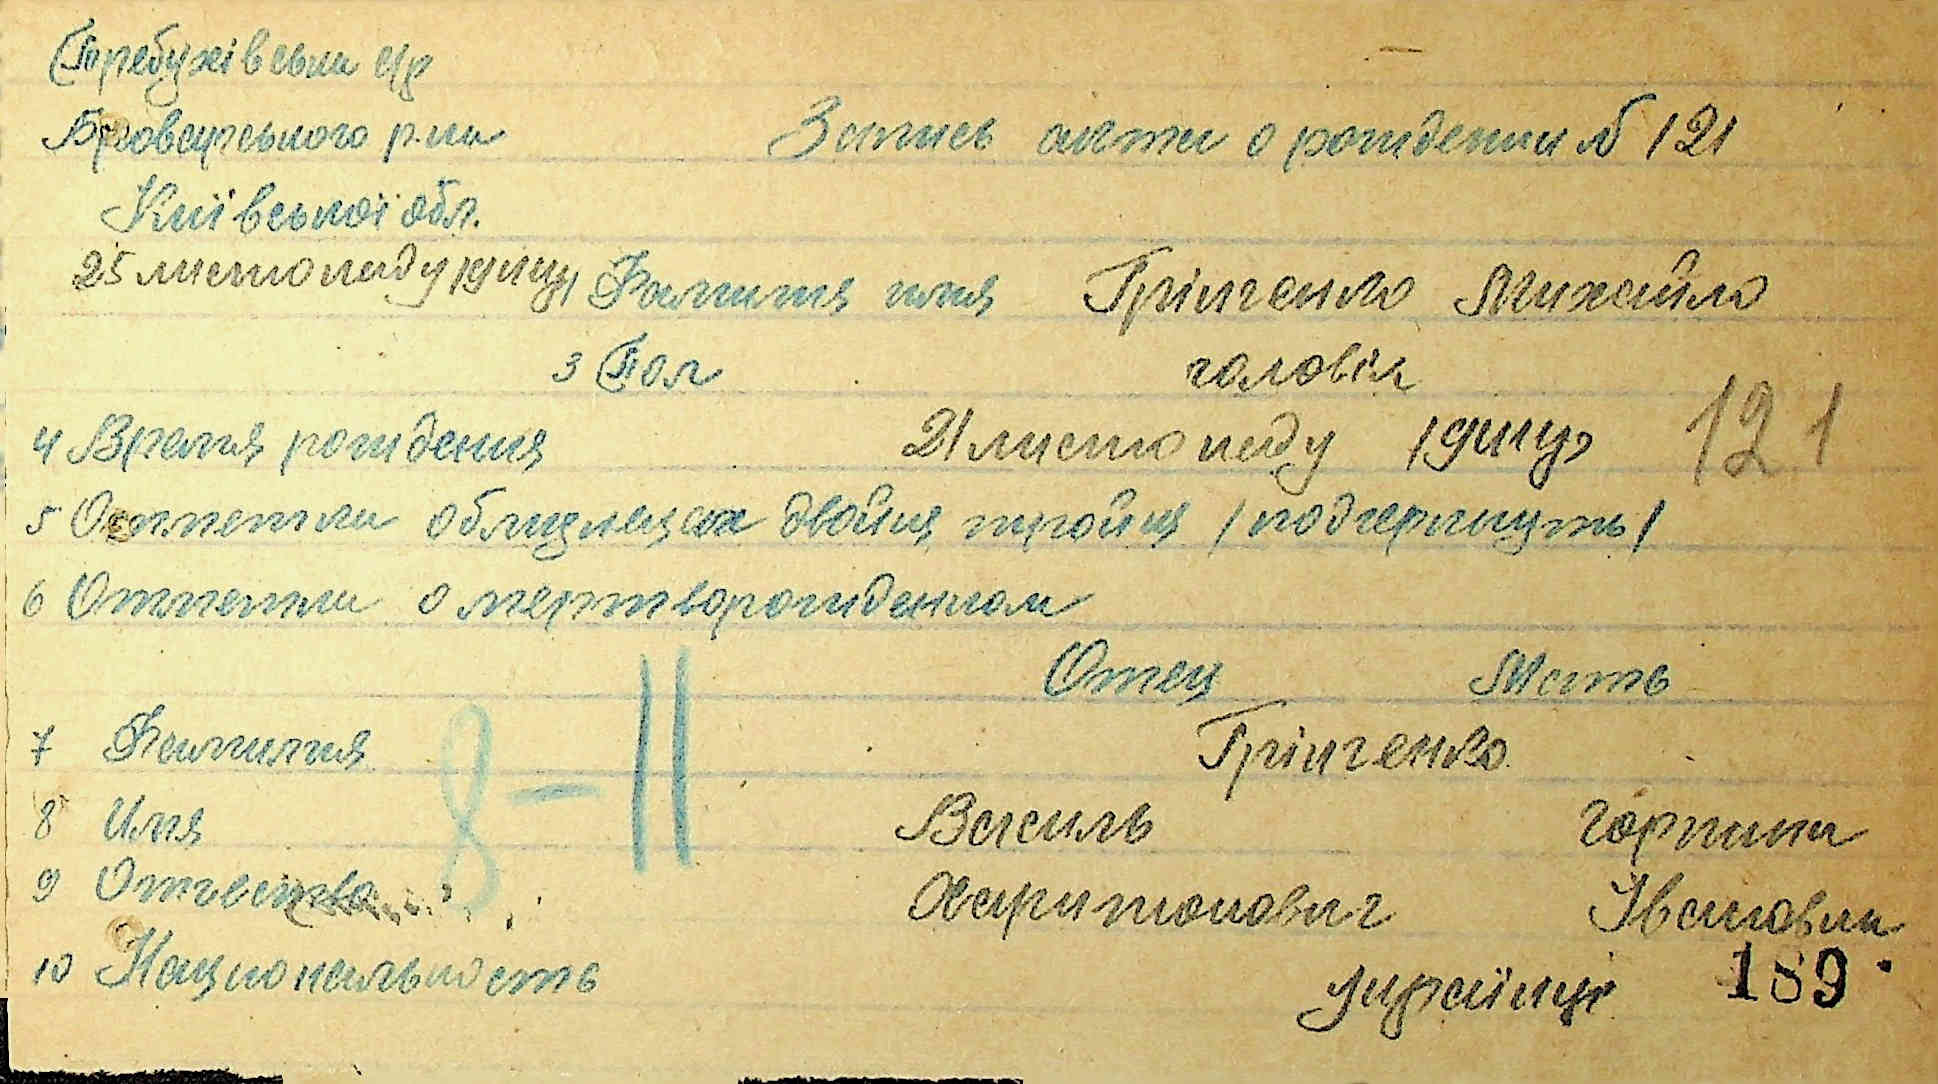 Требухівська с/р
Броварського р-на
Запись акта о рождении № 121
Київської обл.
25 листопаду Фамилия имя Грінченко Михайло
3 Пол чоловік
4 Время рождения 21 листопаду
121
5 Отметка близнецах двойня, тройня /подчеркнуть/
6 Отметка о мертворожденном
Отец Мать
7 Фамилия Грінченко
8 - 11
8 Имя Василь Горпина
9 Отчество Харитонович Івановна
10 Национальность українці
189